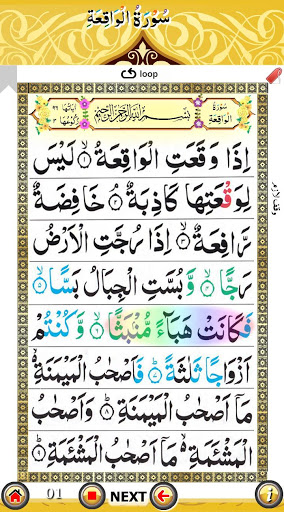 سُوْرَةُ الْوَاقِعَةِ
loop
سُوْرَةُ الْوَاقِعَةِ
بِسْمِ اللّٰهِ الرَّحْمٰنِ الرَّحِيْمِ
اٰيَاتُهَا ٩٦ رُكُوْعُهَا ٣
اِذَا وَقَعَتِ الْوَاقِعَةُ ۙ‏﴿۱﴾ لَيْسَ
لِوَقْعَتِهَا كَاذِبَةٌ ۘ‏﴿۲﴾ خَافِضَةٌ
رَّافِعَةٌ ۙ‏﴿۳﴾ اِذَا رُجَّتِ الْاَرْضُ
رَجًّا ۙ‏﴿۴﴾ وَّ بُسَّتِ الْجِبَالُ بَسًّا ۙ‏﴿۵﴾
فَكَانَتْ هَبَآءً مُّنْۢبَثًّا ۙ‏﴿۶﴾ وَّ كُنْتُمْ
اَزْوَاجًا ثَلٰثَةً ؕ‏﴿۷﴾ فَاَصْحٰبُ الْمَيْمَنَةِ ۙ
مَاۤ اَصْحٰبُ الْمَيْمَنَةِ ؕ‏﴿۸﴾ وَاَصْحٰبُ
الْمَشْـَٔمَةِ ۙ مَاۤ اَصْحٰبُ الْمَشْـَٔمَةِ ؕ‏﴿۹﴾
وقف لازم
01
NEXT
i